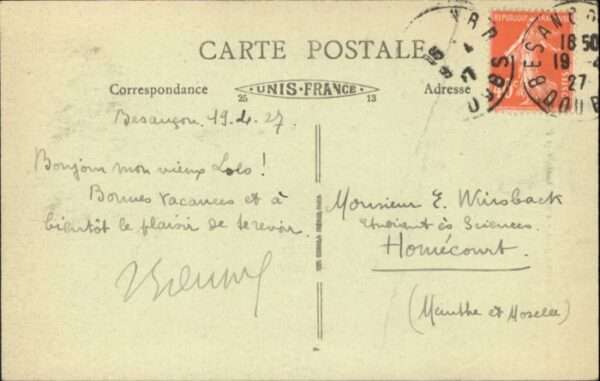 CARTE POSTALE
Correspondance
UNIS-FRANCE
25
13
Adresse
REPUBLIQUE FRANCAISE
BESANCON
16 50
19 - 4
27
DOUBS
Besançon, 19.4.27
Bonjour mon vieux Lolo !
Bonnes vacances et à
bientôt le plaisir de te revoir.
Monsieur E. Wirsback
Etudiant ès Sciences.
Homécourt.
(Meurthe et Moselle)